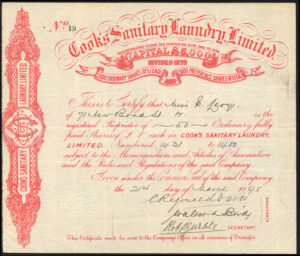 No. 19
Cook's Sanitary Laundry, Limited.
INCORPORATED UNDER THE COMPANIES ACTS 1862 TO 1890
CAPITAL £8,000
DIVIDED INTO
ORDINARY SHARES OF £1 EACH
PREFERENCE SHARES OF £1 EACH
This is to Certify that Miss E. Levy.
of 71 New Bond St. W. is the
registered Proprietor of 50 Ordinary fully
paid Shares of £1 each in COOK'S SANITARY LAUNDRY,
LIMITED. Numbered 1431 to 1480
subject to the Memorandum and Articles of Association
and the Rules and Regulations of the said Company.
Given under the Common Seal of the said Company
the 21st day of March 1898
C Reginald
DIRECTORS.
SECRETARY.
This Certificate must be sent to the Company's Office on all occasions of Transfer.
COOK'S SANITARY
LAUNDRY LIMITED